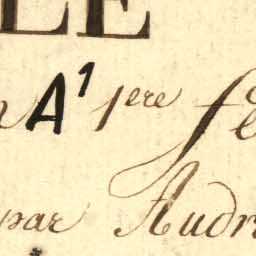 LE
A¹ 1ere
par Audr